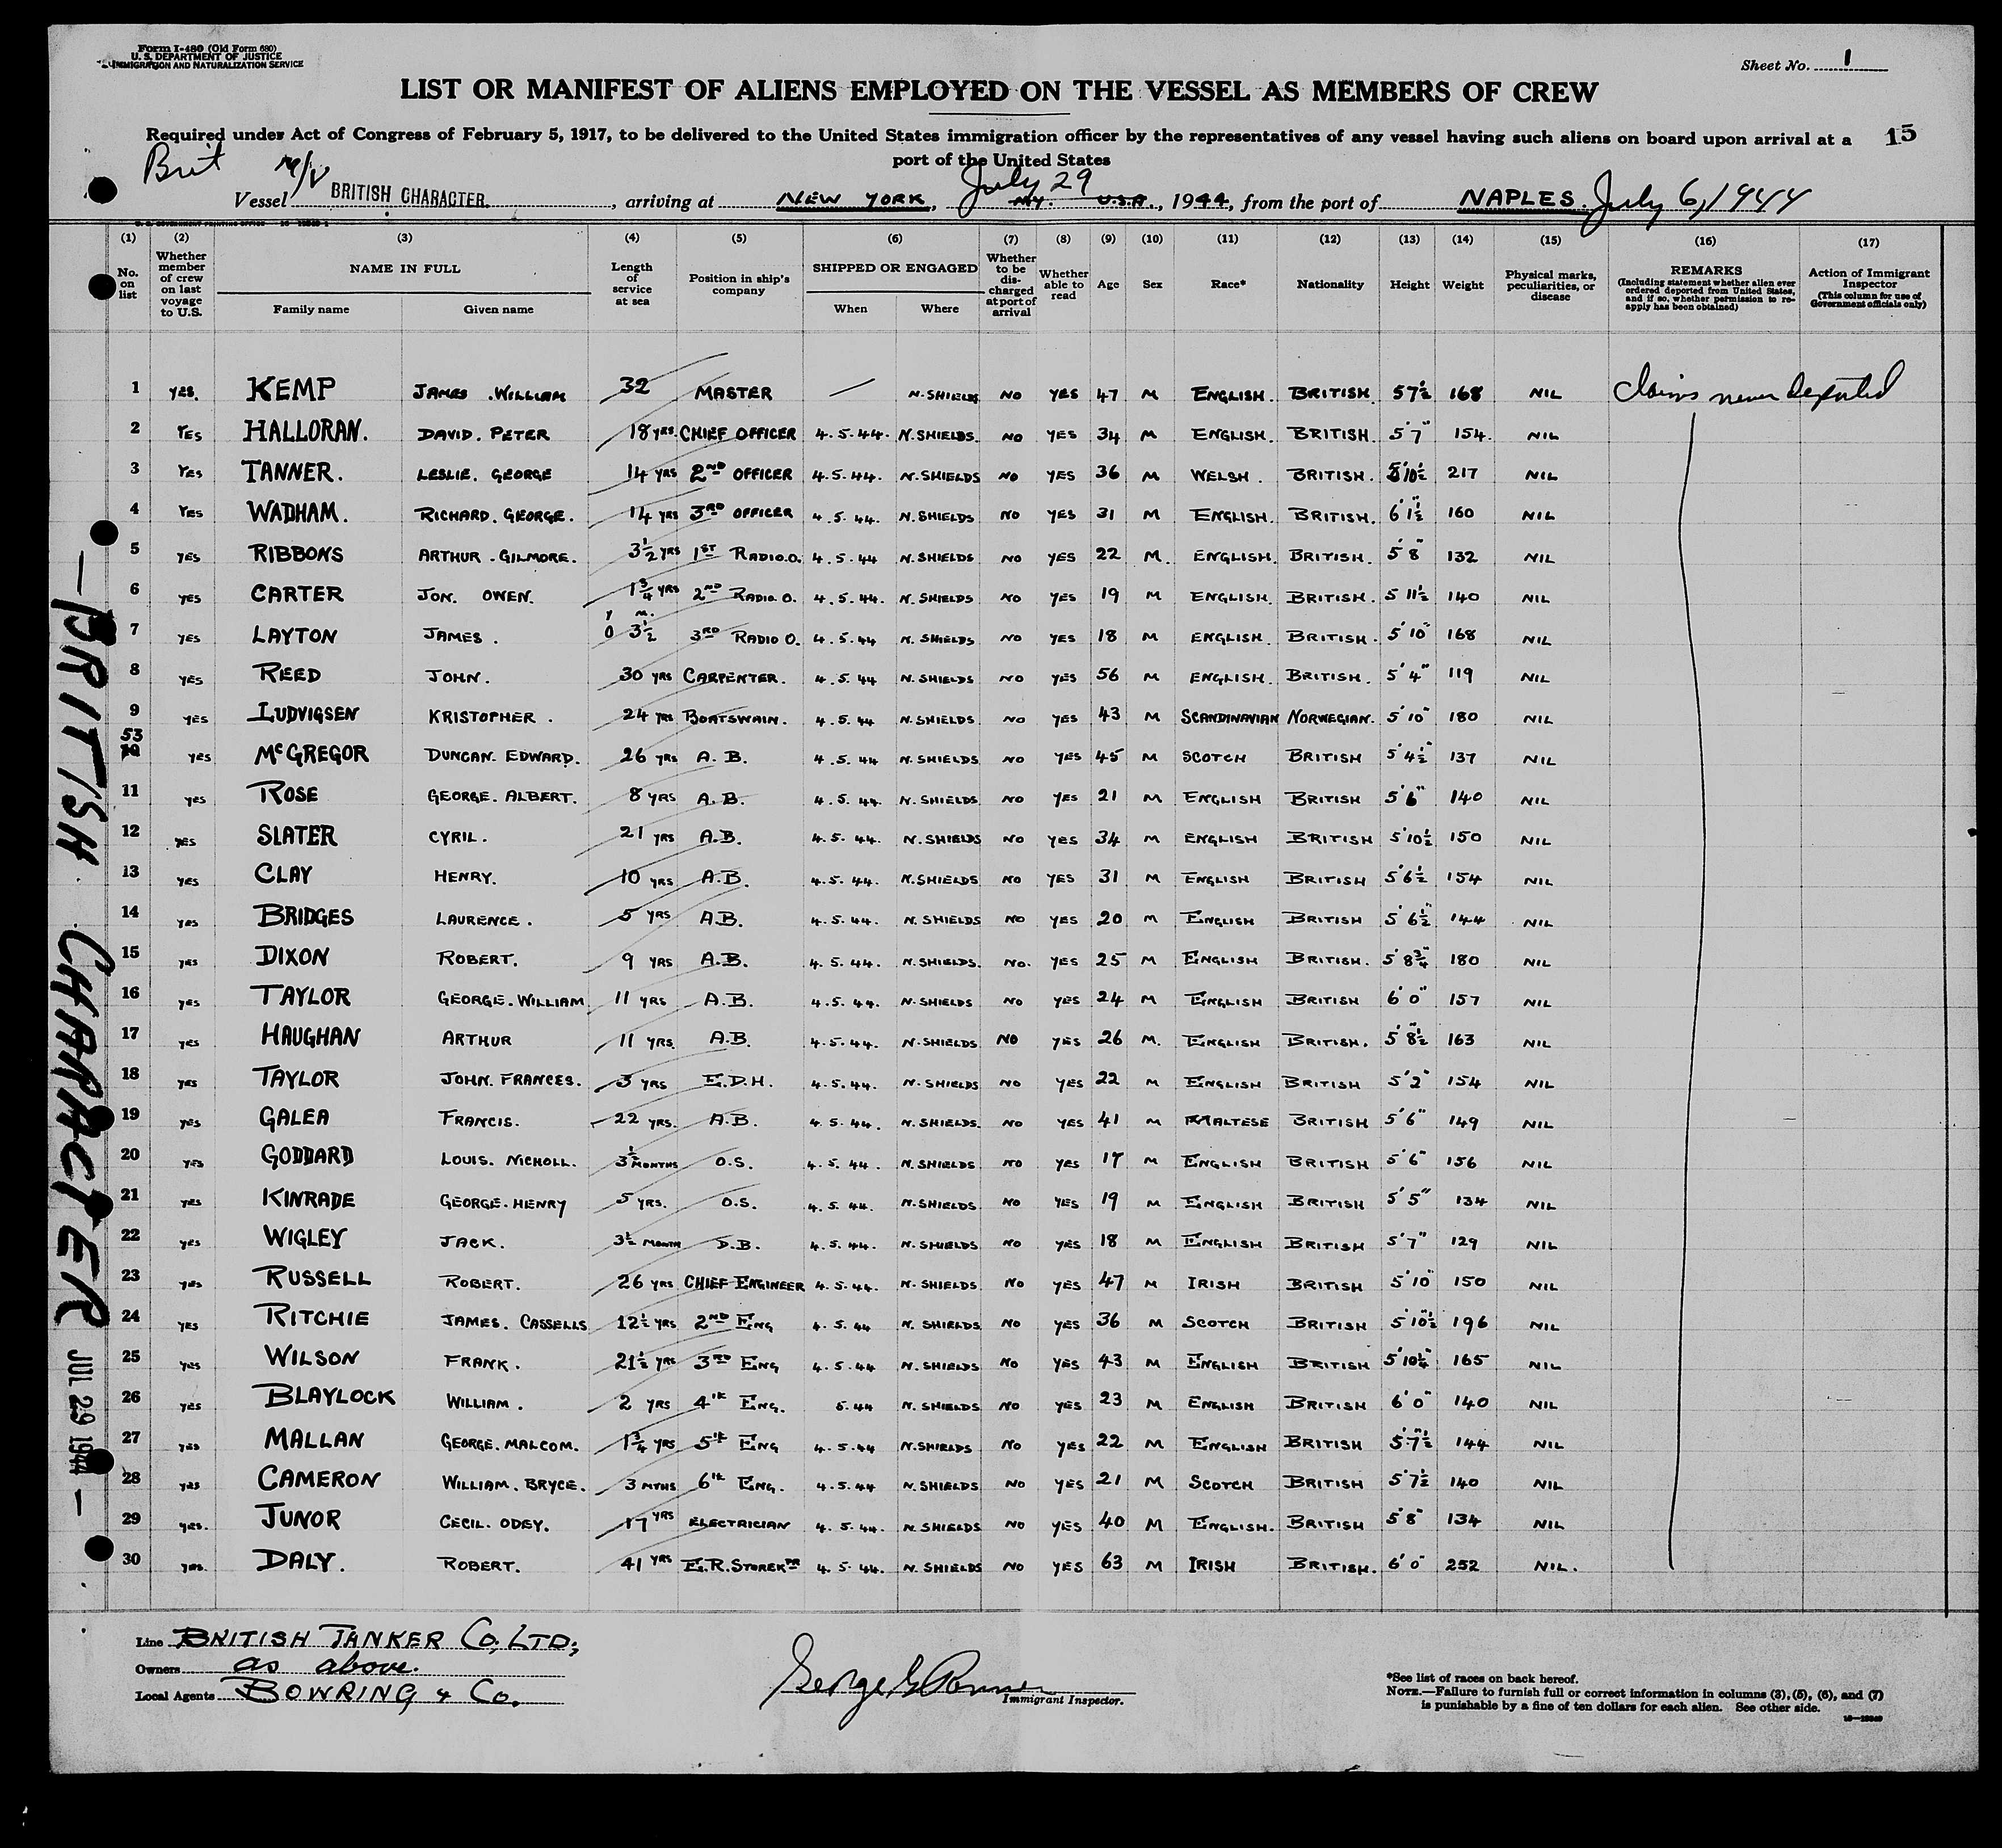 Form I-480 (Old Form 680)
U. S. DEPARTMENT OF JUSTICE
IMMIGRATION AND NATURALIZATION SERVICE
Sheet No. 1
LIST OR MANIFEST OF ALIENS EMPLOYED ON THE VESSEL AS MEMBERS OF CREW
Required under Act of Congress of February 5, 1917, to be delivered to the United States immigration officer by the representatives of any vessel having such aliens on board upon arrival at a
port of the United States
15
Brit M/V
Vessel BRITISH CHARACTER, arriving at NEW YORK, July 29 N.Y. U.S.A., 1944, from the port of NAPLES. July 6, 1944
(1) (2) (3) (4) (5) (6) (7) (8) (9) (10) (11) (12) (13) (14) (15) (16) (17)
No. on list
Whether member of crew on last voyage to U.S.
NAME IN FULL
Family name Given name
Length of service at sea
Position in ship's company
SHIPPED OR ENGAGED
When Where
Whether to be discharged at port of arrival
Whether able to read
Age Sex Race* Nationality Height Weight
Physical marks, peculiarities, or disease
REMARKS
(Including statement whether alien ever ordered deported from United States, and if so, whether permission to reapply has been obtained)
Action of Immigrant Inspector
(This column for use of Government officials only)
1 YES. KEMP JAMES .WILLIAM 32 MASTER — N. SHIELDS NO YES 47 M ENGLISH. BRITISH 5 7½ 168 NIL Claims never deported
2 YES HALLORAN. DAVID. PETER 18 YRS. CHIEF OFFICER 4.5.44. N. SHIELDS. NO YES 34 M ENGLISH. BRITISH. 5'7" 154. NIL
3 YES TANNER. LESLIE. GEORGE 14 YRS 2ND OFFICER 4.5.44. N. SHIELDS NO YES 36 M WELSH. BRITISH. 5'10½ 217 NIL
4 YES WADHAM. RICHARD. GEORGE. 14 YRS 3RD OFFICER 4.5.44. N. SHIELDS NO YES 31 M ENGLISH. BRITISH. 6 1½ 160 NIL
5 YES RIBBONS ARTHUR. GILMORE. 3½ YRS 1ST RADIO.O. 4.5.44 N. SHIELDS NO YES 22 M. ENGLISH. BRITISH. 5 8" 132 NIL
6 YES CARTER JON. OWEN. 1¾ YRS 2ND RADIO. O. 4.5.44. N. SHIELDS NO YES 19 M ENGLISH. BRITISH. 5 11½ 140 NIL
7 YES LAYTON JAMES. Y 0 M. 3½ 3RD RADIO O. 4.5.44 N. SHIELDS NO YES 18 M ENGLISH. BRITISH. 5'10" 168 NIL
8 YES REED JOHN. 30 YRS CARPENTER. 4.5.44 N. SHIELDS NO YES 56 M ENGLISH. BRITISH. 5'4" 119 NIL
9 YES LUDVIGSEN KRISTOPHER. 24 YRS BOATSWAIN. 4.5.44 N. SHIELDS NO YES 43 M SCANDINAVIAN NORWEGIAN. 5'10" 180 NIL
53
10 YES McGREGOR DUNCAN. EDWARD. 26 YRS A. B. 4.5.44 N. SHIELDS NO YES 45 M SCOTCH BRITISH 5'4½" 137 NIL
11 YES ROSE GEORGE. ALBERT. 8 YRS A.B. 4.5.44. N. SHIELDS NO YES 21 M ENGLISH BRITISH 5'6" 140 NIL
12 YES SLATER CYRIL. 21 YRS A.B. 4.5.44. N. SHIELDS NO YES 34 M ENGLISH BRITISH 5'10½ 150 NIL
13 YES CLAY HENRY. 10 YRS A.B. 4.5.44. N. SHIELDS NO YES 31 M ENGLISH BRITISH 5'6½ 154 NIL
14 YES BRIDGES LAURENCE. 5 YRS A.B. 4.5.44. N. SHIELDS NO YES 20 M ENGLISH BRITISH 5'6½" 144 NIL
15 YES DIXON ROBERT. 9 YRS A.B. 4.5.44. N. SHIELDS. NO. YES 25 M ENGLISH BRITISH. 5'8¾" 180 NIL
16 YES TAYLOR GEORGE. WILLIAM 11 YRS A.B. 4.5.44. N. SHIELDS NO YES 24 M ENGLISH BRITISH 6'0" 157 NIL
17 YES HAUGHAN ARTHUR 11 YRS. A.B. 4.5.44. N. SHIELDS NO YES 26 M. ENGLISH BRITISH. 5'8½" 163 NIL
18 YES TAYLOR JOHN. FRANCES. 3 YRS E.D.H. 4.5.44. N. SHIELDS NO YES 22 M ENGLISH BRITISH 5'2" 154 NIL
19 YES GALEA FRANCIS. 22 YRS. A.B. 4.5.44. N. SHIELDS. NO YES 41 M MALTESE BRITISH 5'6" 149 NIL
20 YES GODDARD LOUIS. NICHOLL. 3½ MONTHS O.S. 4.5.44. N. SHIELDS NO YES 17 M ENGLISH BRITISH 5'6" 156 NIL
21 YES KINRADE GEORGE. HENRY 5 YRS. O.S. 4.5.44. N. SHIELDS NO YES 19 M ENGLISH BRITISH 5'5" 134 NIL
22 YES WIGLEY JACK. 3½ MONTH D.B. 4.5.44. N. SHIELDS NO YES 18 M ENGLISH BRITISH 5'7" 129 NIL
23 YES RUSSELL ROBERT. 26 YRS CHIEF ENGINEER 4.5.44. N. SHIELDS NO YES 47 M IRISH BRITISH 5'10" 150 NIL
24 YES RITCHIE JAMES. CASSELLS 12½ YRS 2ND ENG 4.5.44 N. SHIELDS NO YES 36 M SCOTCH BRITISH 5'10½" 196 NIL
25 YES WILSON FRANK. 21½ YRS 3RD ENG 4.5.44 N. SHIELDS NO YES 43 M ENGLISH BRITISH 5'10¼" 165 NIL
26 YES BLAYLOCK WILLIAM. 2 YRS 4th ENG. 5.44 N. SHIELDS NO YES 23 M ENGLISH BRITISH 6'0" 140 NIL
27 YES MALLAN GEORGE. MALCOM. 1¾ YRS 5th ENG 4.5.44 N. SHIELDS NO YES 22 M ENGLISH BRITISH 5'7½" 144 NIL
28 YES CAMERON WILLIAM. BRYCE. 3 MTHS 6th ENG. 4.5.44 N. SHIELDS NO YES 21 M SCOTCH BRITISH 5'7½ 140 NIL
29 YES. JUNOR CECIL. ODEY. 17 YRS ELECTRICIAN 4.5.44. N. SHIELDS NO YES 40 M ENGLISH. BRITISH 5'8" 134 NIL
30 YES. DALY. ROBERT. 41 YRS E.R. STOREKPR 4.5.44. N. SHIELDS NO YES 63 M IRISH BRITISH. 6'0" 252 NIL.
— BRITISH CHARACTER JUL 29 1944 —
Line BRITISH TANKER CO, LTD;
Owners as above.
Local Agents BOWRING & CO.
Immigrant Inspector.
*See list of races on back hereof.
NOTE.—Failure to furnish full or correct information in columns (3), (5), (6), and (7)
is punishable by a fine of ten dollars for each alien. See other side.